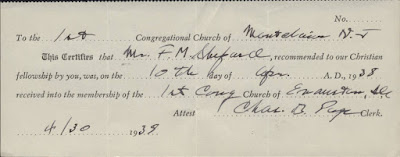 No.
To the 1st Congregational Church of Montclair N.J
This Certifies that Mr. F. M. Shepard, recommended to our Christian
fellowship by you, was, on the 10th day of Apr. A. D., 1938
received into the membership of the 1st Cong Church of Evanston, Ill
Attest Chas. B. Clerk.
4/30 1938